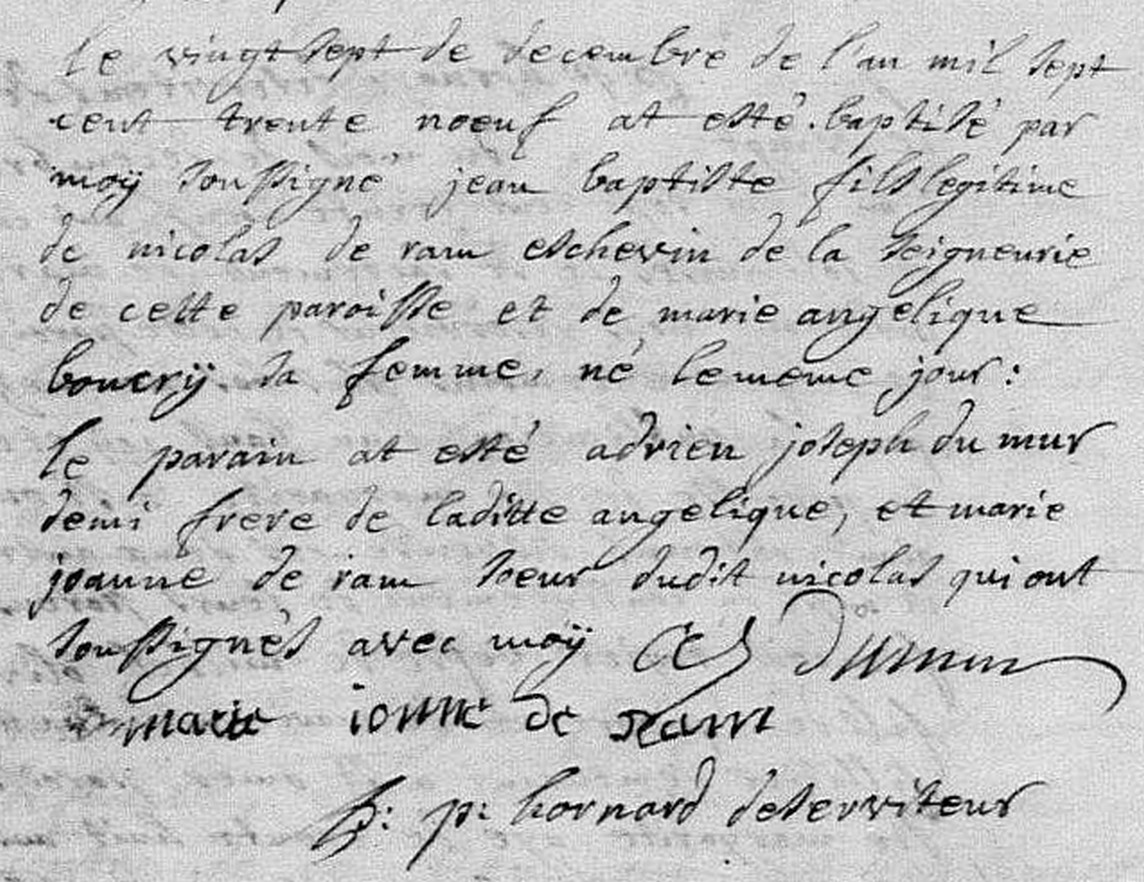 le vingt sept de decembre de l'an mil sept
cent trente noeuf at esté baptisé par
moÿ soussigné jean baptiste fils legitime
de nicolas de ram eschevin de la seigneurie
de cette paroisse et de marie angelique
boucrÿ sa femme, né le meme jour :
le parain at esté adrien joseph du mur
demi frere de laditte angelique, et marie
joanne de ram soeur dudit nicolas qui ont
soussignés avec moÿ Dumur
marie ionne de ram
p: hornard deserviteur